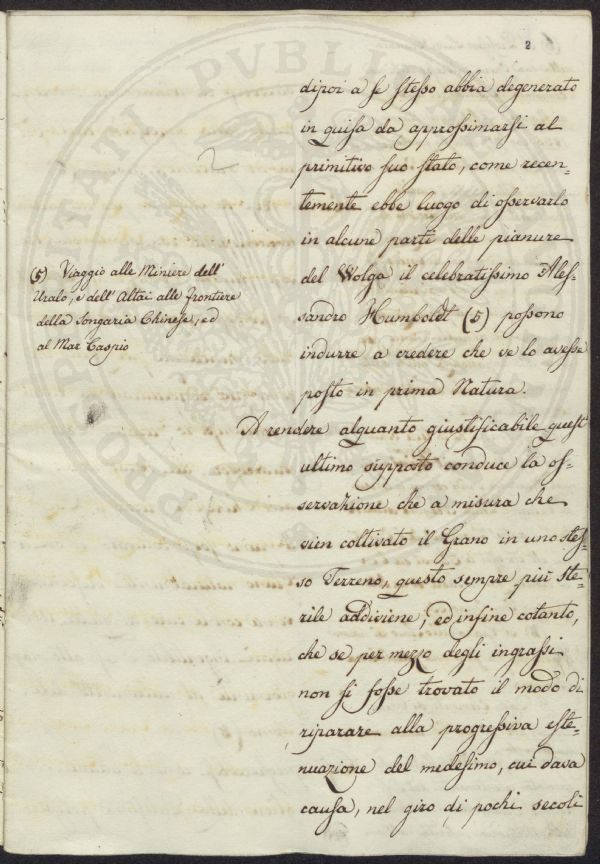 2
dipoi a se stesso abbia degenerato
in guisa da approssimarsi al
primitivo suo stato, come recen=
temente ebbe luogo di osservarlo
in alcune parti delle pianure
del Wolga il celebratissimo Ales=
sandro Humboldt (5) possono
indurre a credere che ve lo avesse
posto in prima Natura.
A rendere alquanto giustificabile quest'
ultimo supposto conduce la os=
servazione che a misura che
vien coltivato il Grano in uno stes=
so Terreno, questo sempre più ste=
rile addiviene, ed infine cotanto,
che se per mezzo degli ingrassi
non si fosse trovato il modo di
riparare alla progressiva este=
nuazione del medesimo, cui dava
causa, nel giro di pochi secoli
2
(5) Viaggio alle Miniere dell'
Uralo, e dell'Altai alle frontiere
della Songaria Chinese, ed
al Mar Caspio
PROSPERITATI PUBLICAE